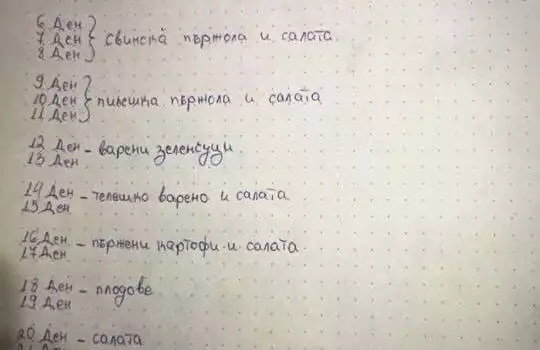 6 Ден
7 Ден } свинска пържола и салата.
8 Ден
9 Ден
10 Ден } пилешка пържола и салата
11 Ден
12 Ден - варени зеленчуци.
13 Ден
14 Ден - телешко варено и салата
15 Ден
16 Ден - пържени картофи и салата.
17 Ден
18 Ден - плодове
19 Ден
20 Ден - салата